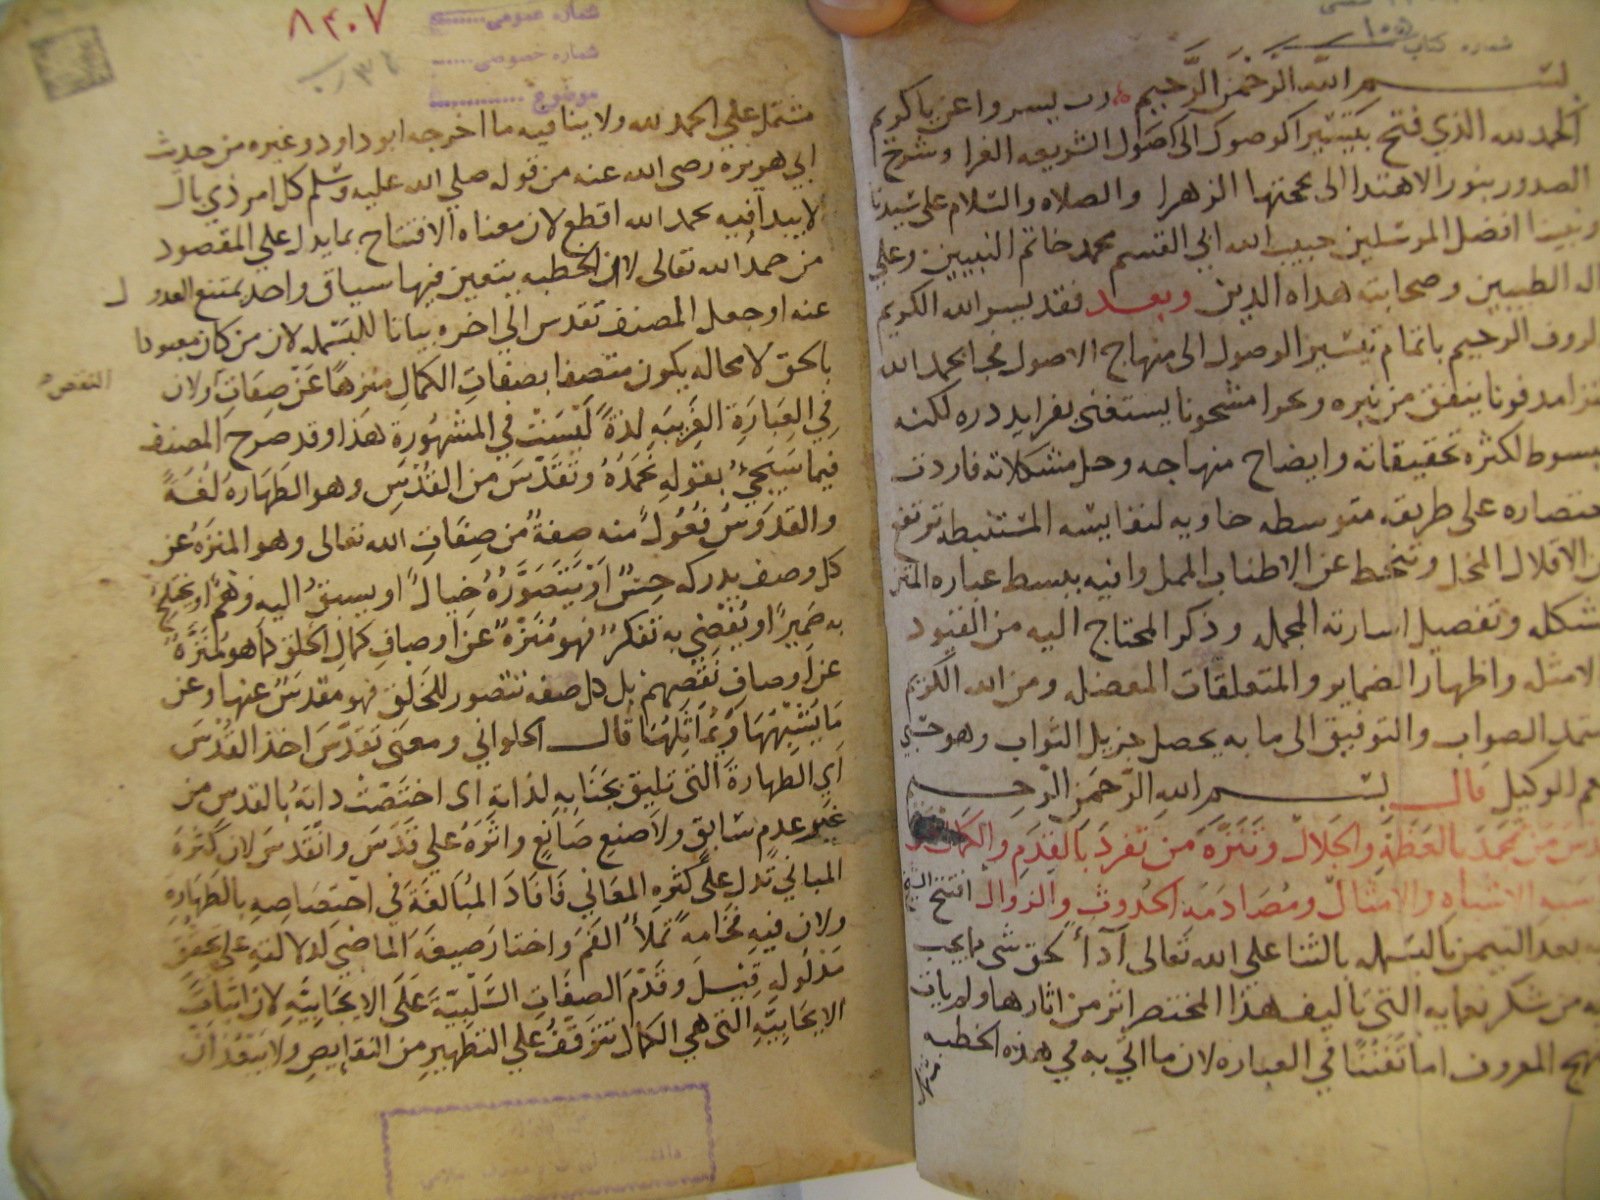 شماره كتاب
بسم الله الرحمن الرحيم رب يسر واعن ياكريم
الحمد لله الذي فتح بتيسير الوصول الى اصول الشريعه الغرا وشرح
الصدور بنور الاهتدا الى محجتها الزهرا والصلاه والسلام على سيدنا
ونبينا افضل المرسلين حبيب الله ابي القسم محمد خاتم النبيين وعلي
اله الطيبين وصحابته هداه الدين وبعد فقد يسر الله الكريم
الروف الرحيم باتمام تيسير الوصول الى منهاج الاصول فجا بحمد الله
مدفونا ينفق من تبره وبحرا مشحونا يستغنى بفرايد دره لكنه
مبسوط لكثرة تحقيقاته وايضاح منهاجه وحل مشكلاته فاردت
اختصاره على طريقه متوسطه حاويه لنفايسه المستنبطه ترتفع
عن الاقلال المخل وتنحط عن الاطناب الممل وافيه ببسط عباره المتن
المشكله وتفصيل اشارته المجمله وذكر المحتاج اليه من القيود
والامثله واظهار الضماير والمتعلقات المعضله ومن الله الكريم
استمد الصواب والتوفيق الى ما به يحصل جزيل الثواب وهو حسبي
ونعم الوكيل قال بسم الله الرحمن الرحيم
تقدس من تمجد بالعظمة والجلال وتنزه من تفرد بالقدم والكمال
الاشباه والامثال ومصادمة الحدوث والزوال افتتح
بعد التيمن بالبسمله بالثنا علي الله تعالى أدآ لحق شى مما يجب
من شكر نعمايه التي تاليف هذا المختصر اثر من اثارها ولم يات
المعروف اما تفننا في العباره لان ما اتي به في هذه الخطبه
مشتمل
۸۴۰۷
شماره عمومى
شماره خصوصى
موضوع
مشتمل علي الحمد لله ولا ينافيه ما اخرجه ابو داود وغيره من حديث
ابي هريرة رضى الله عنه من قوله صلي الله عليه وسلم كل امر ذي بال
لا يبدا فيه بحمد الله اقطع لان معناه الافتتاح بما يدل علي المقصود
من حمد الله تعالى لان الخطبه يتعين فيها سياق واحد يمتنع العدول
عنه او جعل المصنف تقدس الي اخره بيانا للبسمله لان من كان معبودا
بالحق لا محاله يكون متصفا بصفات الكمال منزها عن صفات النقص او لان
في العبارة الغريبه لذة ليست في المشهورة هذا وقد صرح المصنف
فيما سيجئ بقوله نحمده وتقدس من القدس وهو الطهارة لغة
والقدوس فعول منه صفة من صفات الله تعالى وهو المنزه عن
كل وصف يدركه حس او يتصوره خيال او يسبق اليه وهم او يختلج
به ضمير او يفضي به تفكر فهو منزه عن اوصاف كمال الخلق كما هو منزه
عن اوصاف نقصهم بل كل صفه تتصور للخلق فهو مقدس عنها وعن
ما يشبهها ويماثلها قال الحلواني ومعنى تقدس اخذ القدس
اي الطهارة التي تليق بجنابه لذاته اى اختصت ذاته بالقدس من
غير عدم سابق ولا صنع صانع واثره علي قدس وانقدس لان كثرة
المباني تدل على كثره المعاني فافاد المبالغة في اختصاصه بالطهاره
ولان فيه فخامة تملأ الفم واختار صيغة الماضي لدلالته على تحقق
مدلوله قيل وقدم الصفات السلبية على الايجابيه لان اثبات
الايجابيه التى هي الكمال تتوقف علي التطهير من النقايص ولا يبعد ان